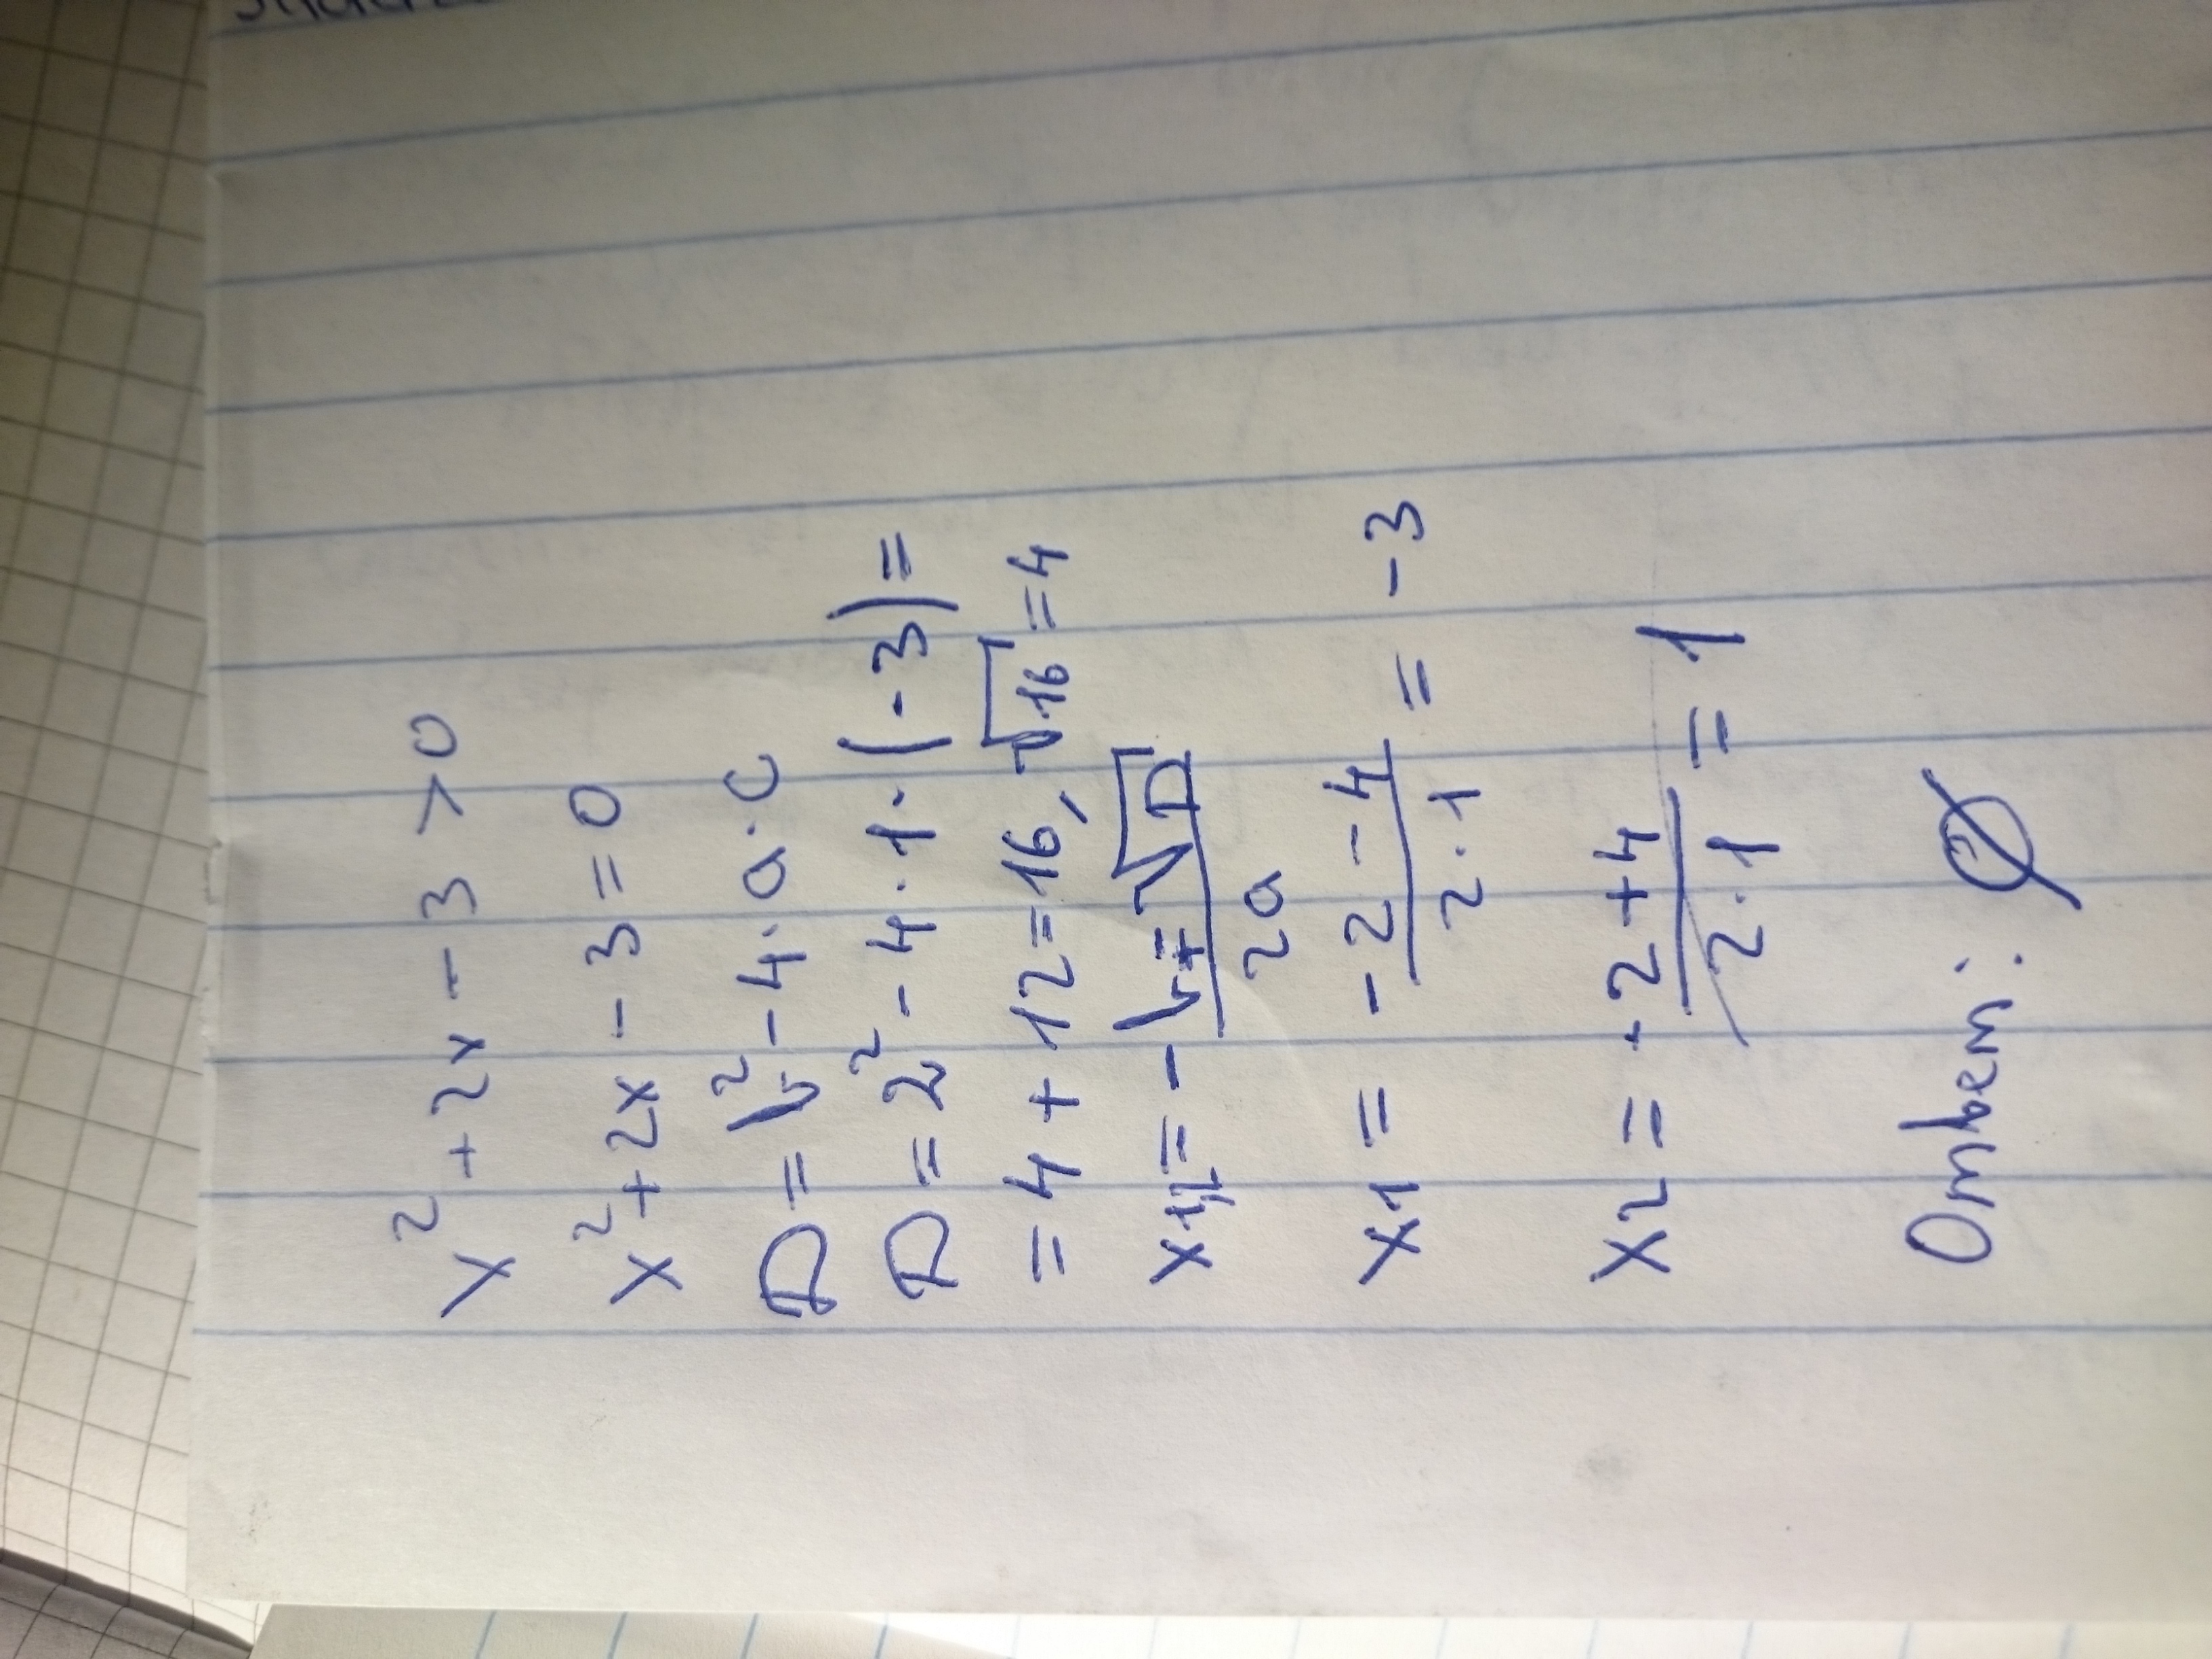 x² + 2x - 3 > 0
x² + 2x - 3 = 0
D = b² - 4 · a · c
D = 2² - 4 · 1 · (-3) =
= 4 + 12 = 16, √16 = 4
x1,2 = -b ± √D / 2a
x1 = -2 - 4 / 2 · 1 = -3
x2 = -2 + 4 / 2 · 1 = 1
Ответ: Ø